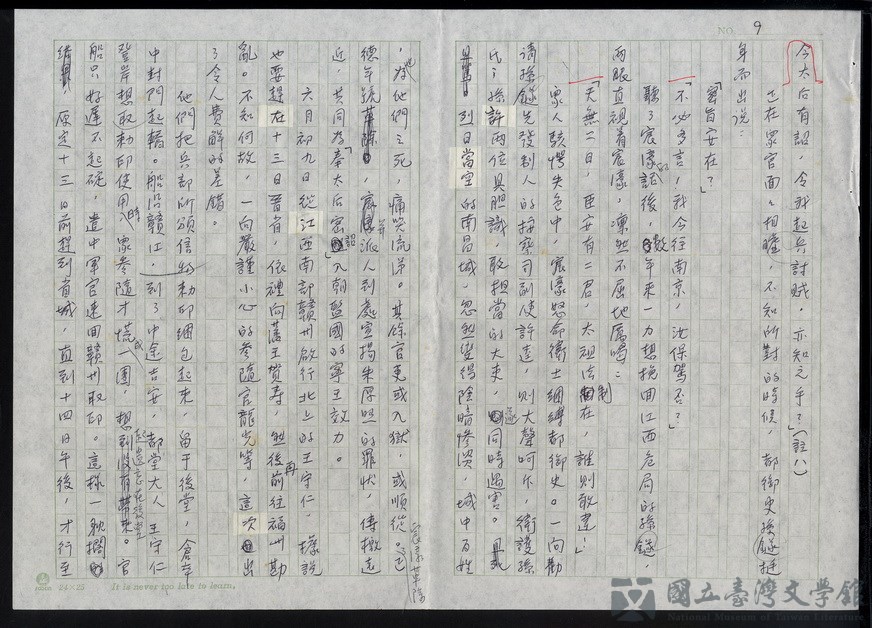 NO. 9
今太后有詔，令我起兵討賊，亦知之乎？」（註八）
正在眾官面面相覷，不知所對的時候，都御史孫燧挺
身而出說：
「密旨安在？」
「不必多言，我今往南京，汝保駕否？」
聽了宸濠的話後，數年來一力想挽回江西危局的孫燧，
兩眼直視着宸濠，凜然不屈地厲喝：
「天無二日，臣安有二君，太祖法制在，誰則敢違！」
眾人駭愕失色中，宸濠怒命衛士綑縛都御史。一向勸
請孫燧先發制人的按察司副使許逵，則大聲呵斥，衛護孫
氏；孫許兩位具膽識，敢想當的大吏，遂同時遇害。
烈日當空的南昌城，忽然變得陰暗慘淡，城中百姓
，為他們之死，痛哭流涕。其餘官吏或入獄，或順從。
宸濠革除
德年號，并派人到處宣揚朱厚照的罪狀，傳檄遠
近，共同為「奉太后密詔」入朝監國的寧王效力。
六月初九日從江西南部贛州啟行北上的王守仁，據說
也要趕在十三日晉省，依禮向蕃王賀壽，然後再前往福州勘
亂。不知何故，一向嚴謹小心的參隨官龍光等，這次出
了令人費解的差錯。
他們把兵部所頒信物敕印綑包起來，留于後堂，倉卒
中封門起轎。船沿贛江，到了中途吉安，都堂大人王守仁
登岸想取敕印使用時，眾參隨才慌成一團，想到
官
船只好遲不起碇，遣中軍官速回贛州取印。這樣一耽擱
原定十三日前趕到省城，直到十四日午後，才行至
24×25 It is never too late to learn.
國立臺灣文學館
National Museum of Taiwan Literature